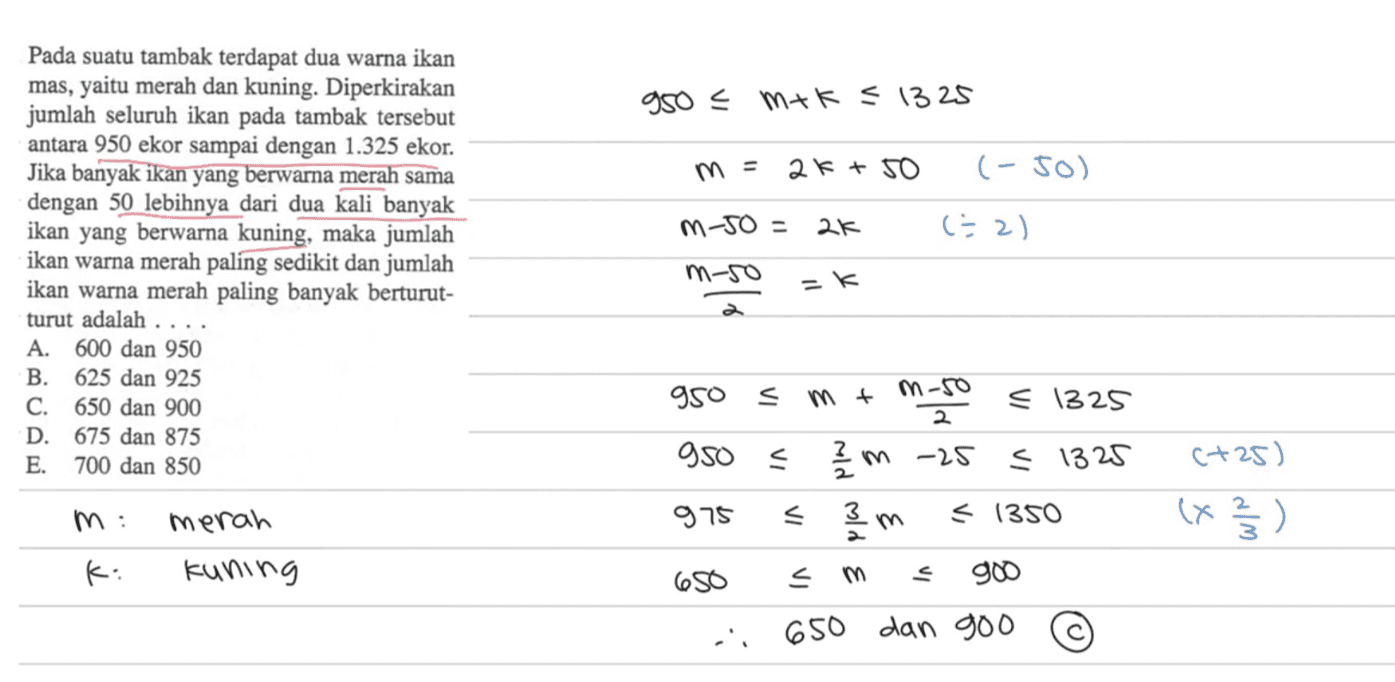 Pada suatu tambak terdapat dua warna ikan
mas, yaitu merah dan kuning. Diperkirakan
jumlah seluruh ikan pada tambak tersebut
antara 950 ekor sampai dengan 1.325 ekor.
Jika banyak ikan yang berwarna merah sama
dengan 50 lebihnya dari dua kali banyak
ikan yang berwarna kuning, maka jumlah
ikan warna merah paling sedikit dan jumlah
ikan warna merah paling banyak berturut-
turut adalah . . . .
A. 600 dan 950
B. 625 dan 925
C. 650 dan 900
D. 675 dan 875
E. 700 dan 850
m : merah
k : kuning
950 ≤ m+k ≤ 1325
m = 2k + 50 (- 50)
m-50 = 2k (÷ 2)
m-50/2 = k
950 ≤ m + m-50/2 ≤ 1325
950 ≤ 3/2 m -25 ≤ 1325 (+25)
975 ≤ 3/2 m ≤ 1350 (× 2/3)
650 ≤ m ≤ 900
∴ 650 dan 900 C